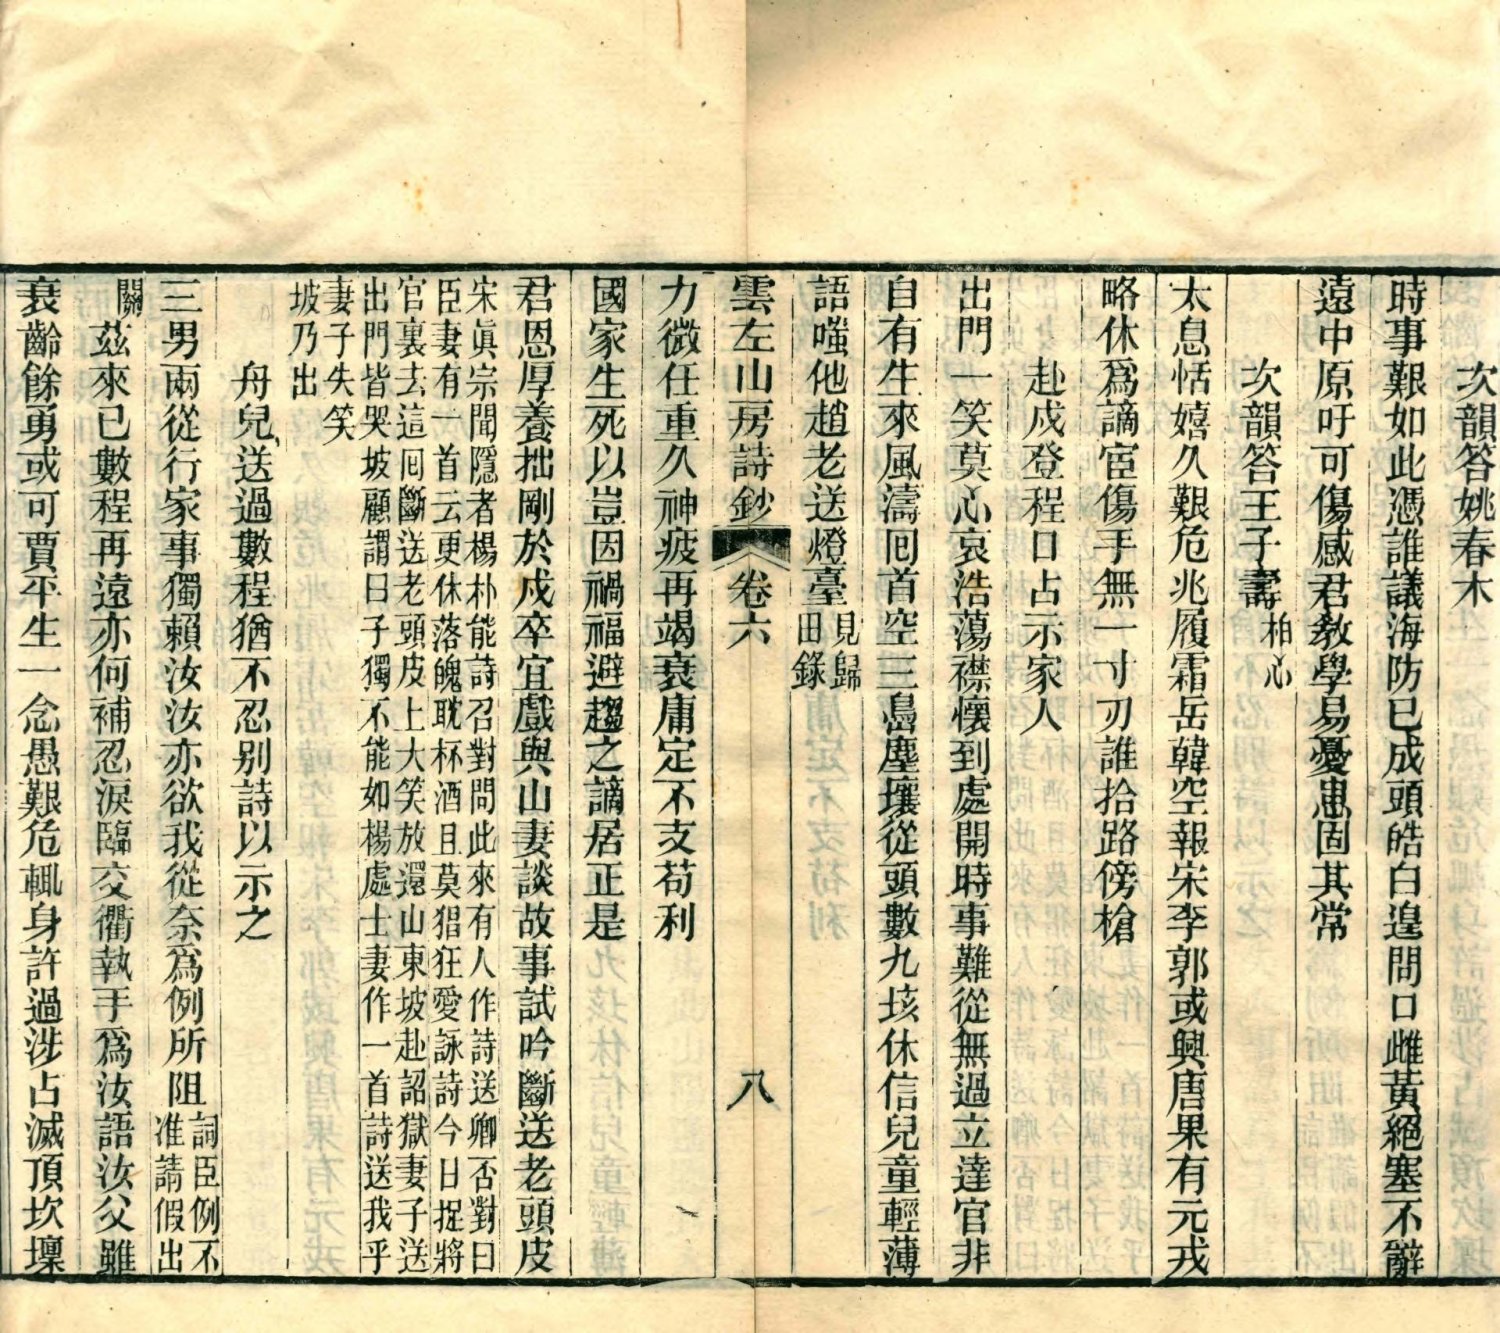 次韻答姚春木
時事艱如此憑誰議海防已成頭皓白遑問口雌黃絕塞不辭
遠中原吁可傷感君敎學易憂患固其常
次韻答王子壽柏心
太息恬嬉久艱危兆履霜岳韓空報宋李郭或興唐果有元戎
略休爲謫宦傷手無一寸刃誰拾路傍槍
赴戍登程口占示家人
出門一笑莫心哀浩蕩襟懷到處開時事難從無過立達官非
自有生來風濤囘首空三島塵壤從頭數九垓休信兒童輕薄
語嗤他趙老送燈臺見歸
田錄
雲左山房詩鈔 卷六 八
力微任重久神疲再竭衰庸定不支苟利
國家生死以豈因禍福避趨之謫居正是
君恩厚養拙剛於戍卒宜戲與山妻談故事試吟斷送老頭皮
宋眞宗聞隱者楊朴能詩召對問此來有人作詩送卿否對曰
臣妻有一首云更休落魄耽杯酒且莫猖狂愛詠詩今日捉將
官裏去這囘斷送老頭皮上大笑放還山東坡赴詔獄妻子送
出門皆哭坡顧謂曰子獨不能如楊處士妻作一首詩送我乎
妻子失笑
坡乃出
舟兒送過數程猶不忍别詩以示之
三男兩從行家事獨賴汝汝亦欲我從奈爲例所阻詞臣例不
准請假出
關
茲來已數程再遠亦何補忍淚臨交衢執手爲汝語汝父雖
衰齡餘勇或可賈平生一念愚艱危輒身許過涉占滅頂坎壈